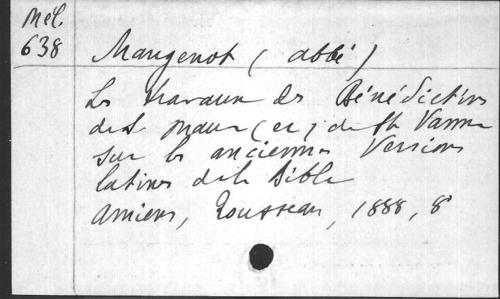 Mél.
638
Mangenot (abbé)
Les travaux des Bénédictins
de St Maur (et) de St Vanne
sur les anciennes Versions
latines de la Bible
Amiens, Rousseau, 1888, 8°